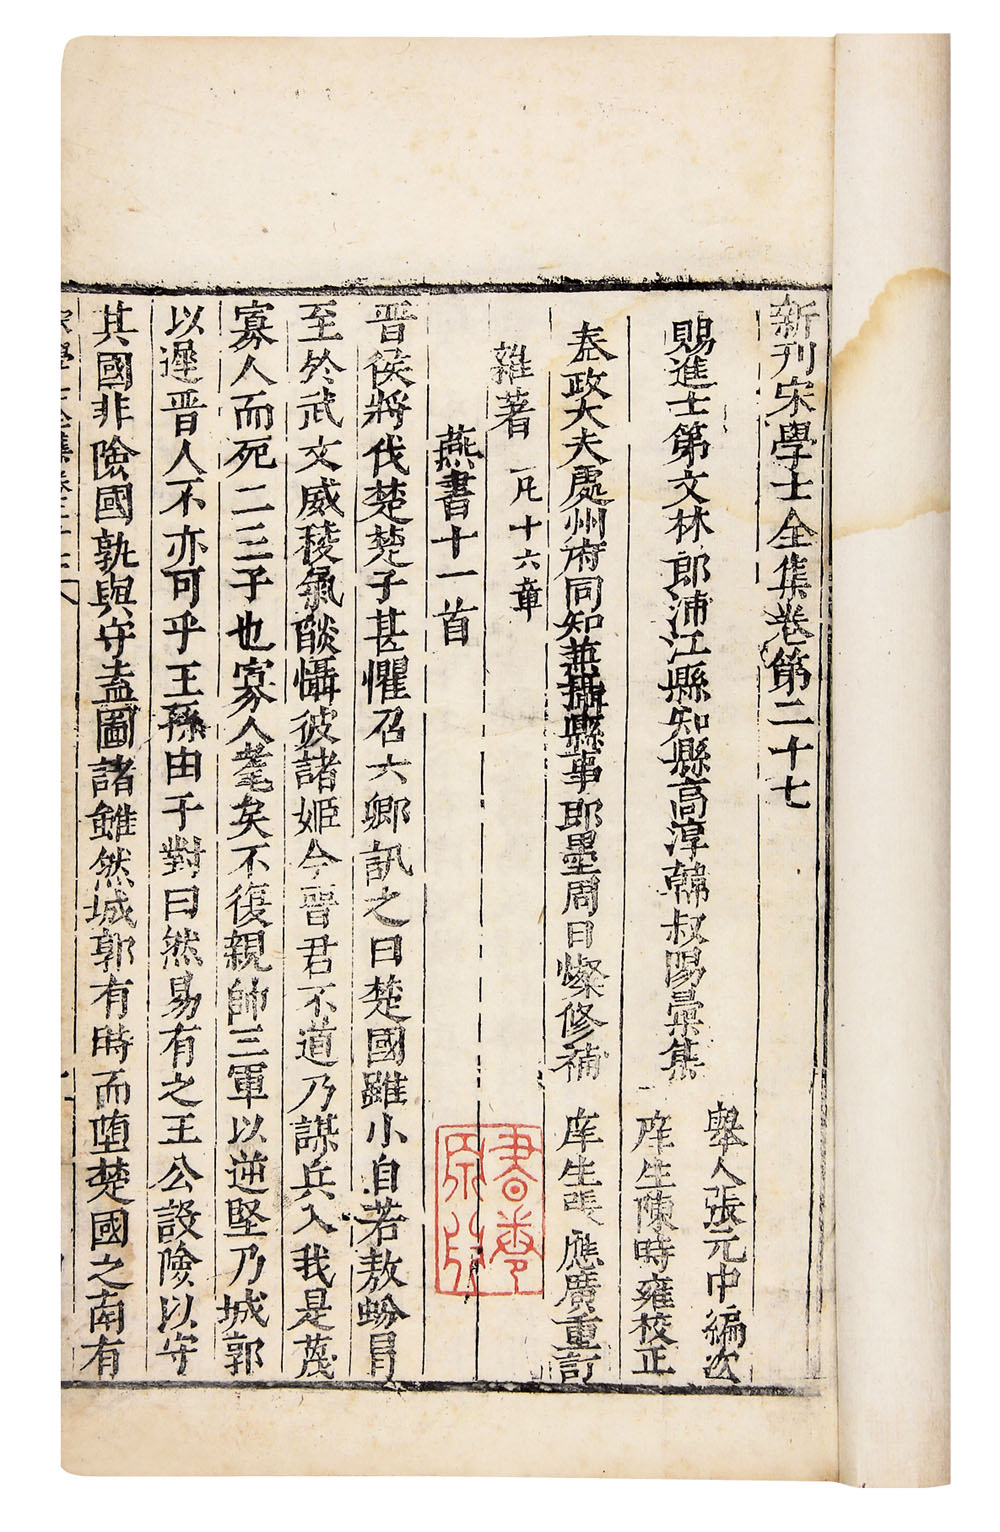 新刊宋學士全集卷第二十七
賜進士第文林郎浦江縣知縣高淳韓叔陽彙集
舉人張元中編次
庠生陳時雍校正
奉政大夫處州府同知兼攝縣事即墨周日燦修補
庠生張應廣重訂
雜著一凡十六章
燕書十一首
晋侯將伐楚楚子甚懼召六卿訊之曰楚國雖小自若敖蚡冒
至於武文威稜氣𦦨懾彼諸姬今晋君不道乃謀兵入我是蔑
寡人而死二三子也寡人耄矣不復親帥三軍以逆堅乃城郭
以遲晋人不亦可乎王孫由于對曰然易有之王公設險以守
其國非險國孰與守盍圖諸雖然城郭有時而墮楚國之南有